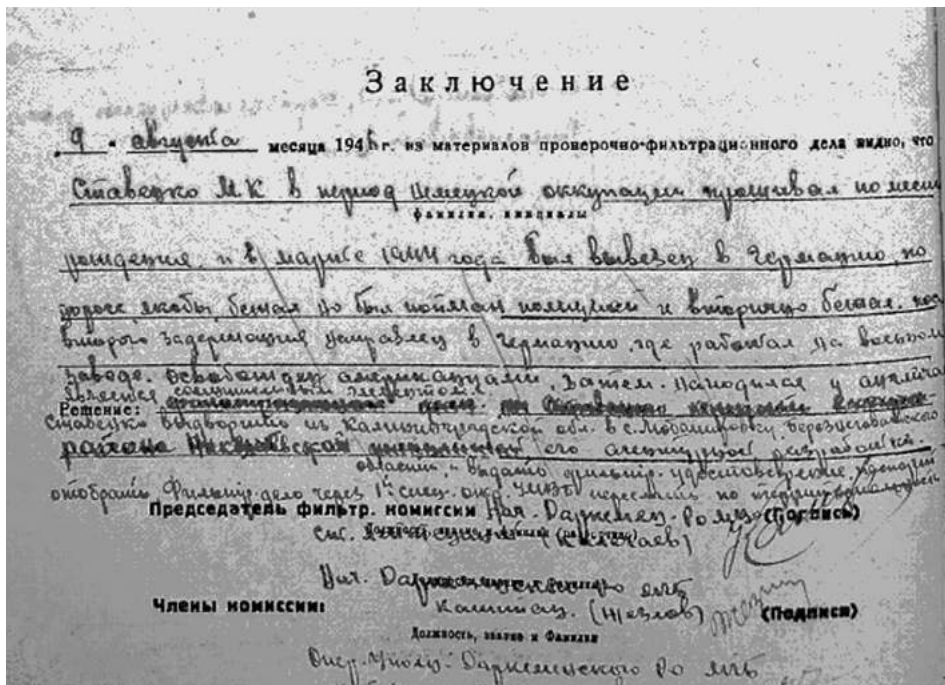 Заключение
„9 - августа месяца 1946 г. из материалов проверочно-фильтрационного дела видно, что
Ставецко М.К в период немецкой оккупации проживал по месту
фамилия, инициалы
рождения. и в марте 1944 года был вывезен в Германию, по
дороге якобы бежал но был пойман полицией и вторично бежал. после
второго задержания направлен в Германию где работал на военном
заводе. Освобожден американцами, затем находился у англичан
является сомнительным элементом.
Решение:
Ставецко выдворить из Калининградской обл. в с. Березнеговатского
района Николаевской его агентурной разработкой.
области, и выдать фильтр. удостоверение,
отобрать. Фильтр. дело через 1й спец. отд. УМВД переслать по территориальности
Председатель фильтр. комиссии Нач. Даркемен. Ро МВД (Подпись)
Члены комиссии: Капитан. (Жезлов) (Подписи)
Должность, звание и Фамилия
Опер. Уполн. Даркеменского Ро МГБ